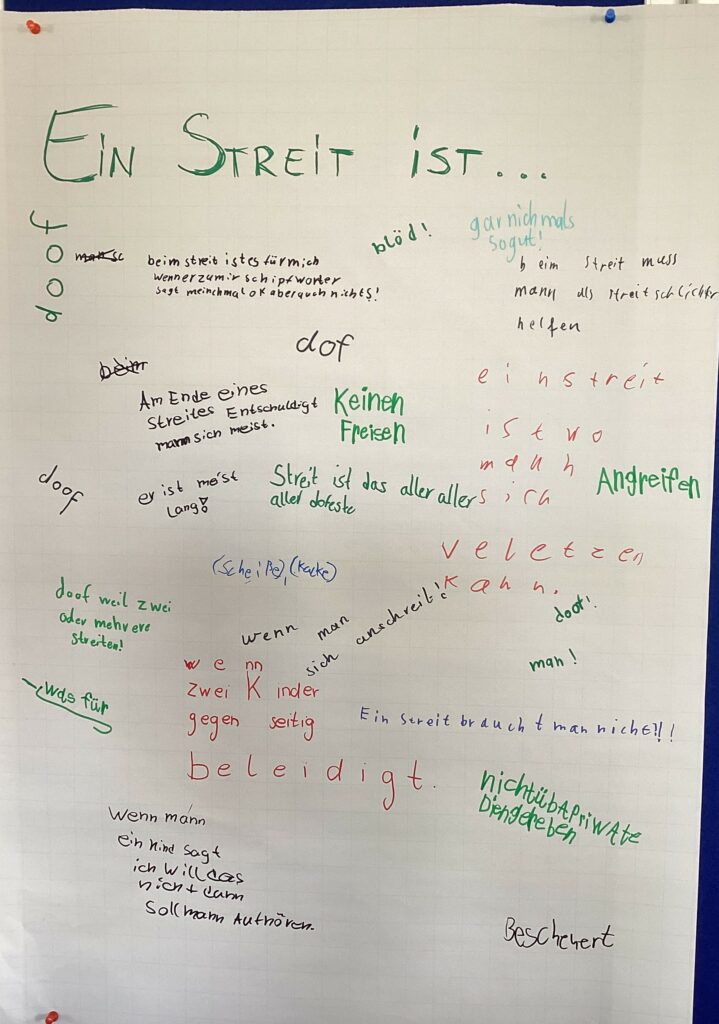 EIN STREIT IST...
doof
blöd!
garnichmals
sogut!
beim streit istes fürmich
wennerzumir schipfworter
sagt meinchmal ok aberauch nichts!
beim Streit muss
mann als streitschlichter
helfen
dof
beim
Am Ende eines
Streites Entschuldigt
mann sich meist.
Keinen
Freisen
einstreit
ist wo
mann
sich
veletzen
kann.
Angreifen
doof
er ist meist
Lang!
Streit ist das aller aller
aller dofeste
(Scheiße), (Kacke)
doof weil zwei
oder mehrere
streiten!
wenn man
sich anschreit!
doof!
man!
was für
wenn
zwei Kinder
gegen seitig
beleidigt.
Ein streit braucht man nicht?!!
nichtübAPriWAte
Diengereben
Wenn mann
ein Kind sagt
ich will das
nicht dann
Soll mann Aufhören.
Bescheuert